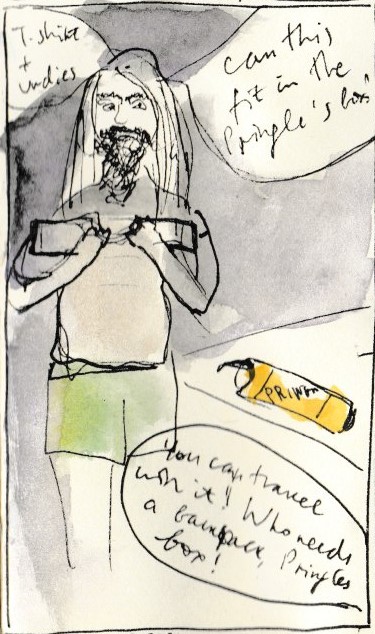 T-shirt
+
undies
can this
fit in the
Pringle's box
PRINGL
You can travel
with it! Who needs
a backpack, Pringles
box!